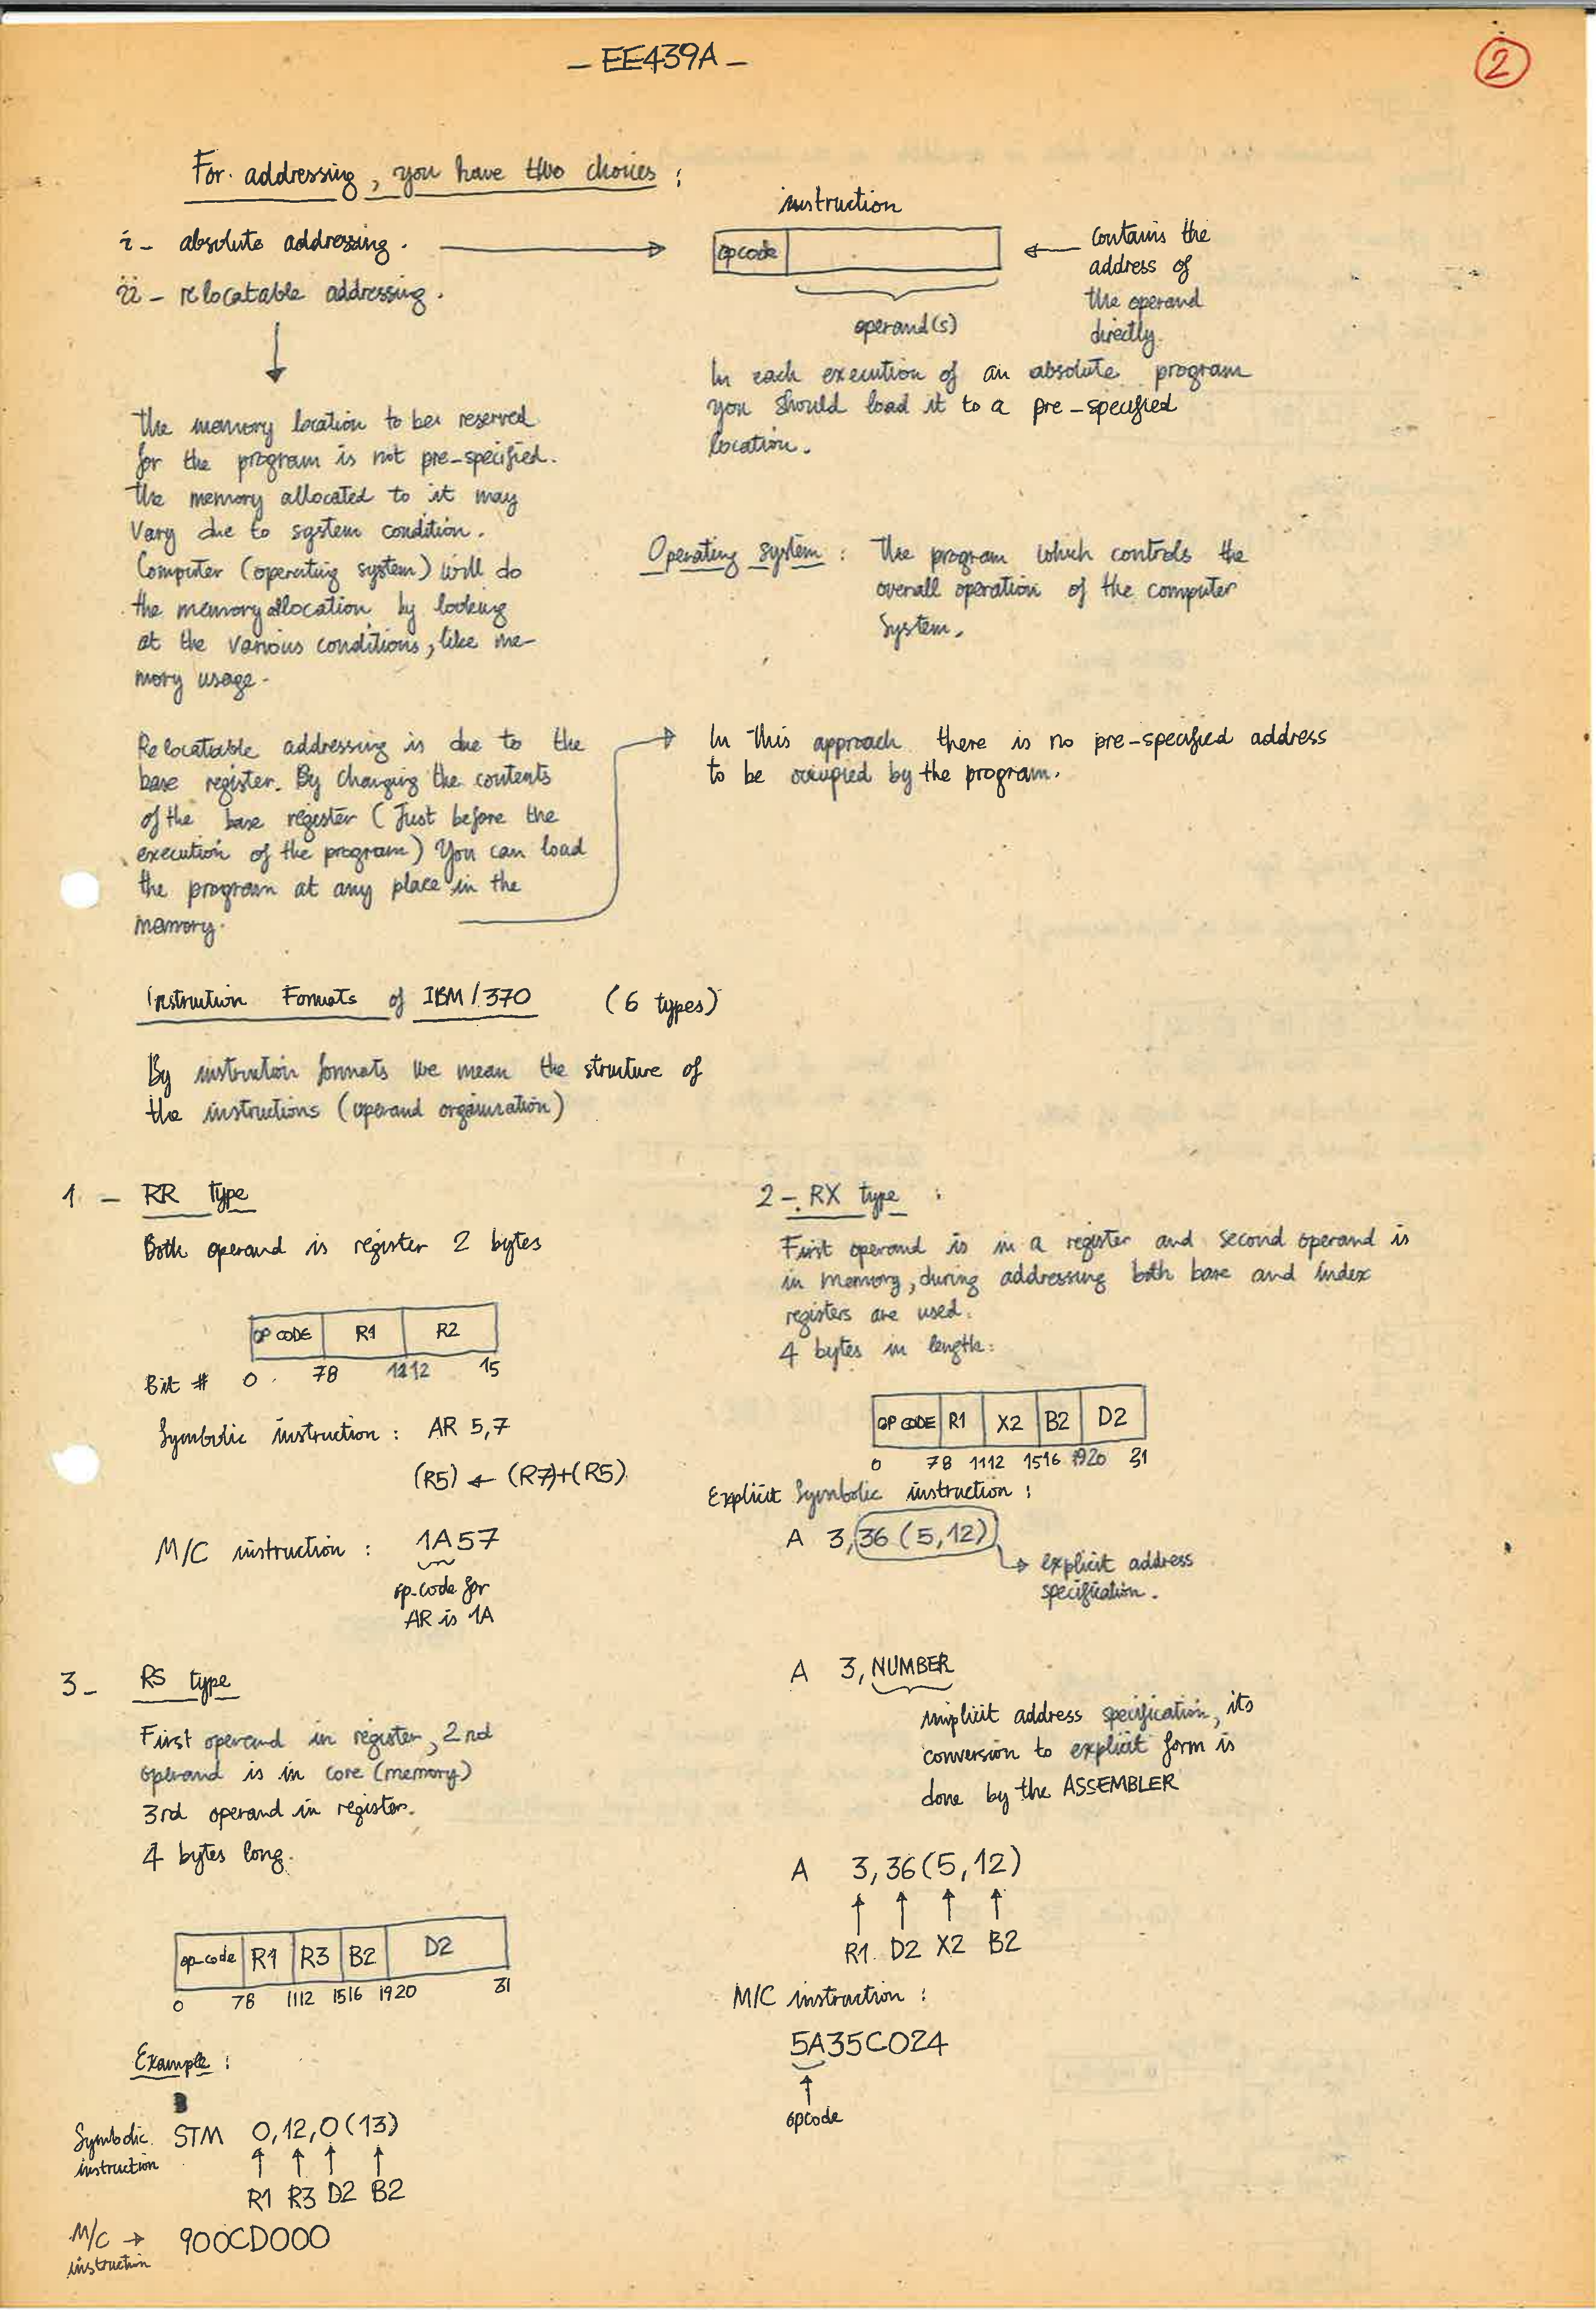 - EE439A -
2
For addressing, you have two choices :
i - absolute addressing.
ii - relocatable addressing.
instruction
opcode
operand(s)
contains the
address of
the operand
directly.
In each execution of an absolute program
you should load it to a pre-specified
location.
The memory location to be reserved
for the program is not pre-specified.
The memory allocated to it may
vary due to system condition.
Computer (operating system) will do
the memory allocation by looking
at the various conditions, like me-
mory usage.
Operating system : The program which controls the
overall operation of the computer
system.
Relocatable addressing is due to the
base register. By changing the contents
of the base register (Just before the
execution of the program) You can load
the program at any place in the
memory.
In this approach there is no pre-specified address
to be occupied by the program.
Instruction Formats of IBM/370 (6 types)
By instruction formats we mean the structure of
the instructions (operand organisation)
1 - RR type
Both operand is register 2 bytes
OP CODE R1 R2
Bit # 0 78 1112 15
Symbolic instruction : AR 5,7
(R5) ← (R7)+(R5)
M/C instruction : 1A57
op-code for
AR is 1A
2 - RX type :
First operand is in a register and second operand is
in memory, during addressing both base and index
registers are used.
4 bytes in length.
OP CODE R1 X2 B2 D2
0 78 1112 1516 1920 31
Explicit Symbolic instruction :
A 3,36 (5,12)
→ explicit address
specification.
A 3, NUMBER
implicit address specification, its
conversion to explicit form is
done by the ASSEMBLER
A 3,36(5,12)
R1 D2 X2 B2
M/C instruction :
5A35C024
opcode
3 - RS type
First operand in register, 2nd
operand is in core (memory)
3rd operand in register.
4 bytes long.
op-code R1 R3 B2 D2
0 78 1112 1516 1920 31
Example :
Symbolic instruction STM 0,12,0(13)
R1 R3 D2 B2
M/C → 900CD000
instruction